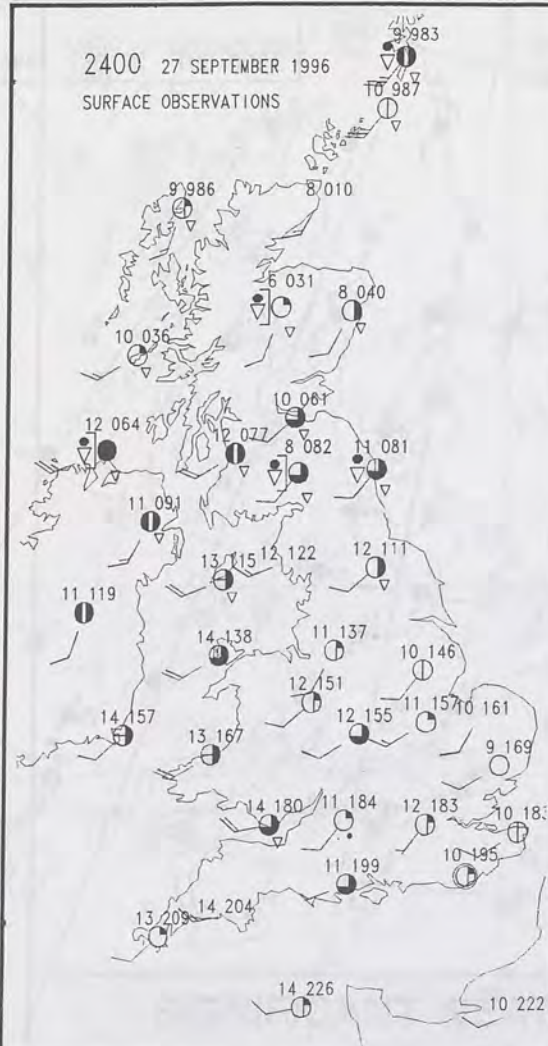 2400 27 SEPTEMBER 1996
SURFACE OBSERVATIONS
9 983
10 987
8 010
9 986
6 031
8 040
10 036
10 061
12 064
12 077
8 082
11 081
11 091
13 115
12 122
12 111
11 119
14 138
11 137
10 146
12 151
14 157
13 167
12 155
11 157
10 161
9 169
14 180
11 184
12 183
10 183
11 199
10 195
13 209
14 204
14 226
10 222